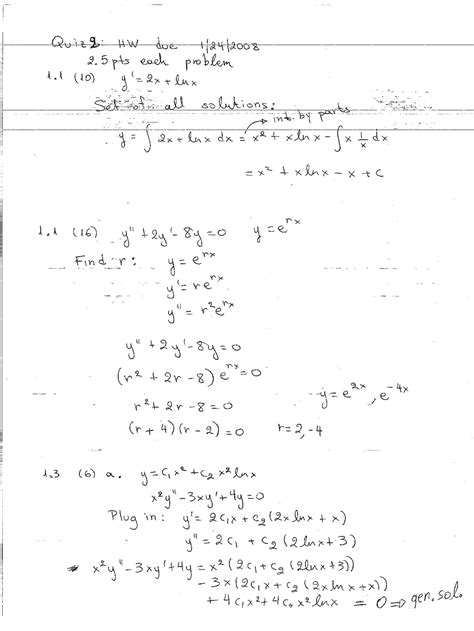 Quiz 2: HW due 1/24/2008
2.5pts each problem
1.1 (10) y' = 2x + lnx
Set of all solutions:
int. by parts
y = ∫ 2x + lnx dx = x² + xlnx - ∫ x 1/x dx
= x² + xlnx - x + C
1.1 (16) y'' + 2y' - 8y = 0 y = e^{rx}
Find r: y = e^{rx}
y' = re^{rx}
y'' = r²e^{rx}
y'' + 2y' - 8y = 0
(r² + 2r - 8) e^{rx} = 0
r² + 2r - 8 = 0
(r + 4)(r - 2) = 0 r = 2, -4
y = e^{2x}, e^{-4x}
1.3 (6) a. y = c₁x² + c₂x²lnx
x²y'' - 3xy' + 4y = 0
Plug in: y' = 2c₁x + c₂(2xlnx + x)
y'' = 2c₁ + c₂(2lnx + 3)
x²y'' - 3xy' + 4y = x²(2c₁ + c₂(2lnx + 3))
- 3x(2c₁x + c₂(2xlnx + x))
+ 4c₁x² + 4c₂x²lnx = 0 ⇒ gen. sol.